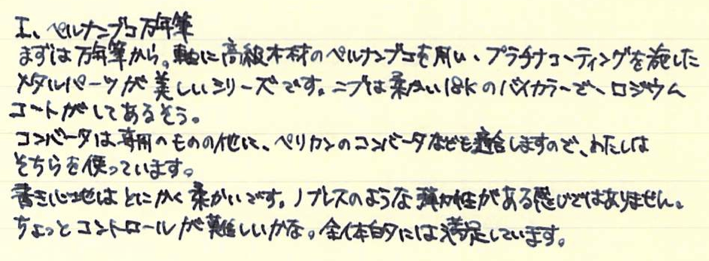 I、ペルナンブコ万年筆
まずは万年筆から。軸に高級木材のペルナンブコを用い、プラチナコーティングを施した
メタルパーツが美しいシリーズです。ニブは柔かい18Kのバイカラーで、ロジウム
コートがしてあるそう。
コンバータは専用のものの他に、ペリカンのコンバータなども適合しますので、わたしは
そちらを使っています。
書き心地はとにかく柔かいです。ノブレスのような弾力性がある感じではありません。
ちょっとコントロールが難しいかな。全体的には満足しています。